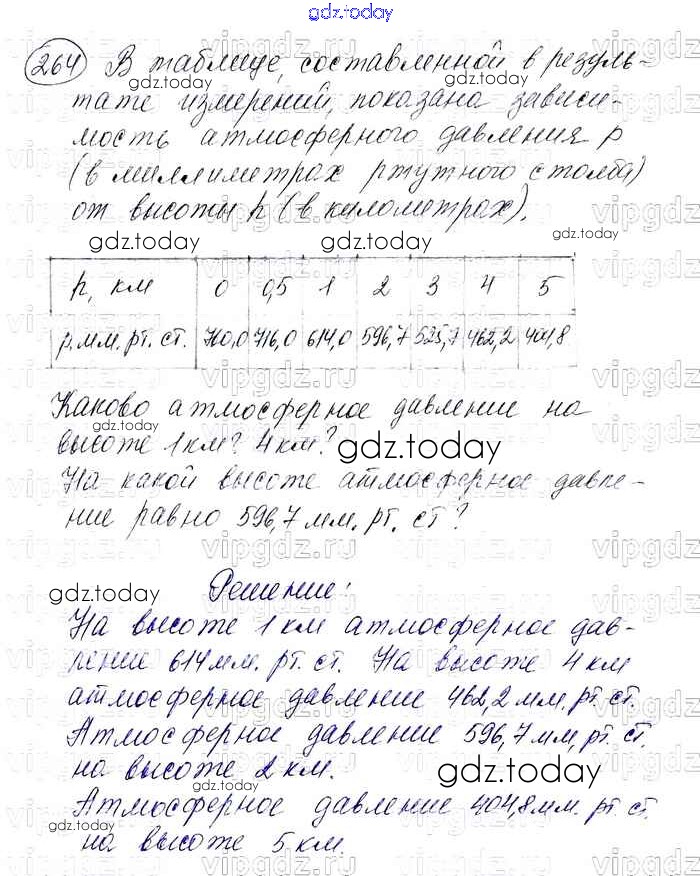 gdz.today
264 В таблице, составленной в резуль-
тате измерений, показана зависи-
мость атмосферного давления p
(в миллиметрах ртутного столба)
от высоты h (в километрах).
gdz.today gdz.today
h, км 0 0,5 1 2 3 4 5
p.мм.рт.ст. 760,0 716,0 614,0 596,7 525,7 462,2 404,8
Каково атмосферное давление на
gdz.today
высоте 1 км? 4 км?
gdz.today
На какой высоте атмосферное давле-
ние равно 596,7 мм. рт. ст?
gdz.today
Решение:
На высоте 1 км атмосферное дав-
ление 614 мм. рт. ст. На высоте 4 км
атмосферное давление 462,2 мм. рт. ст.
Атмосферное давление 596,7 мм, рт. ст.
на высоте 2 км.
gdz.today
Атмосферное давление 404,8 мм. рт. ст.
gdz.today
на высоте 5 км.